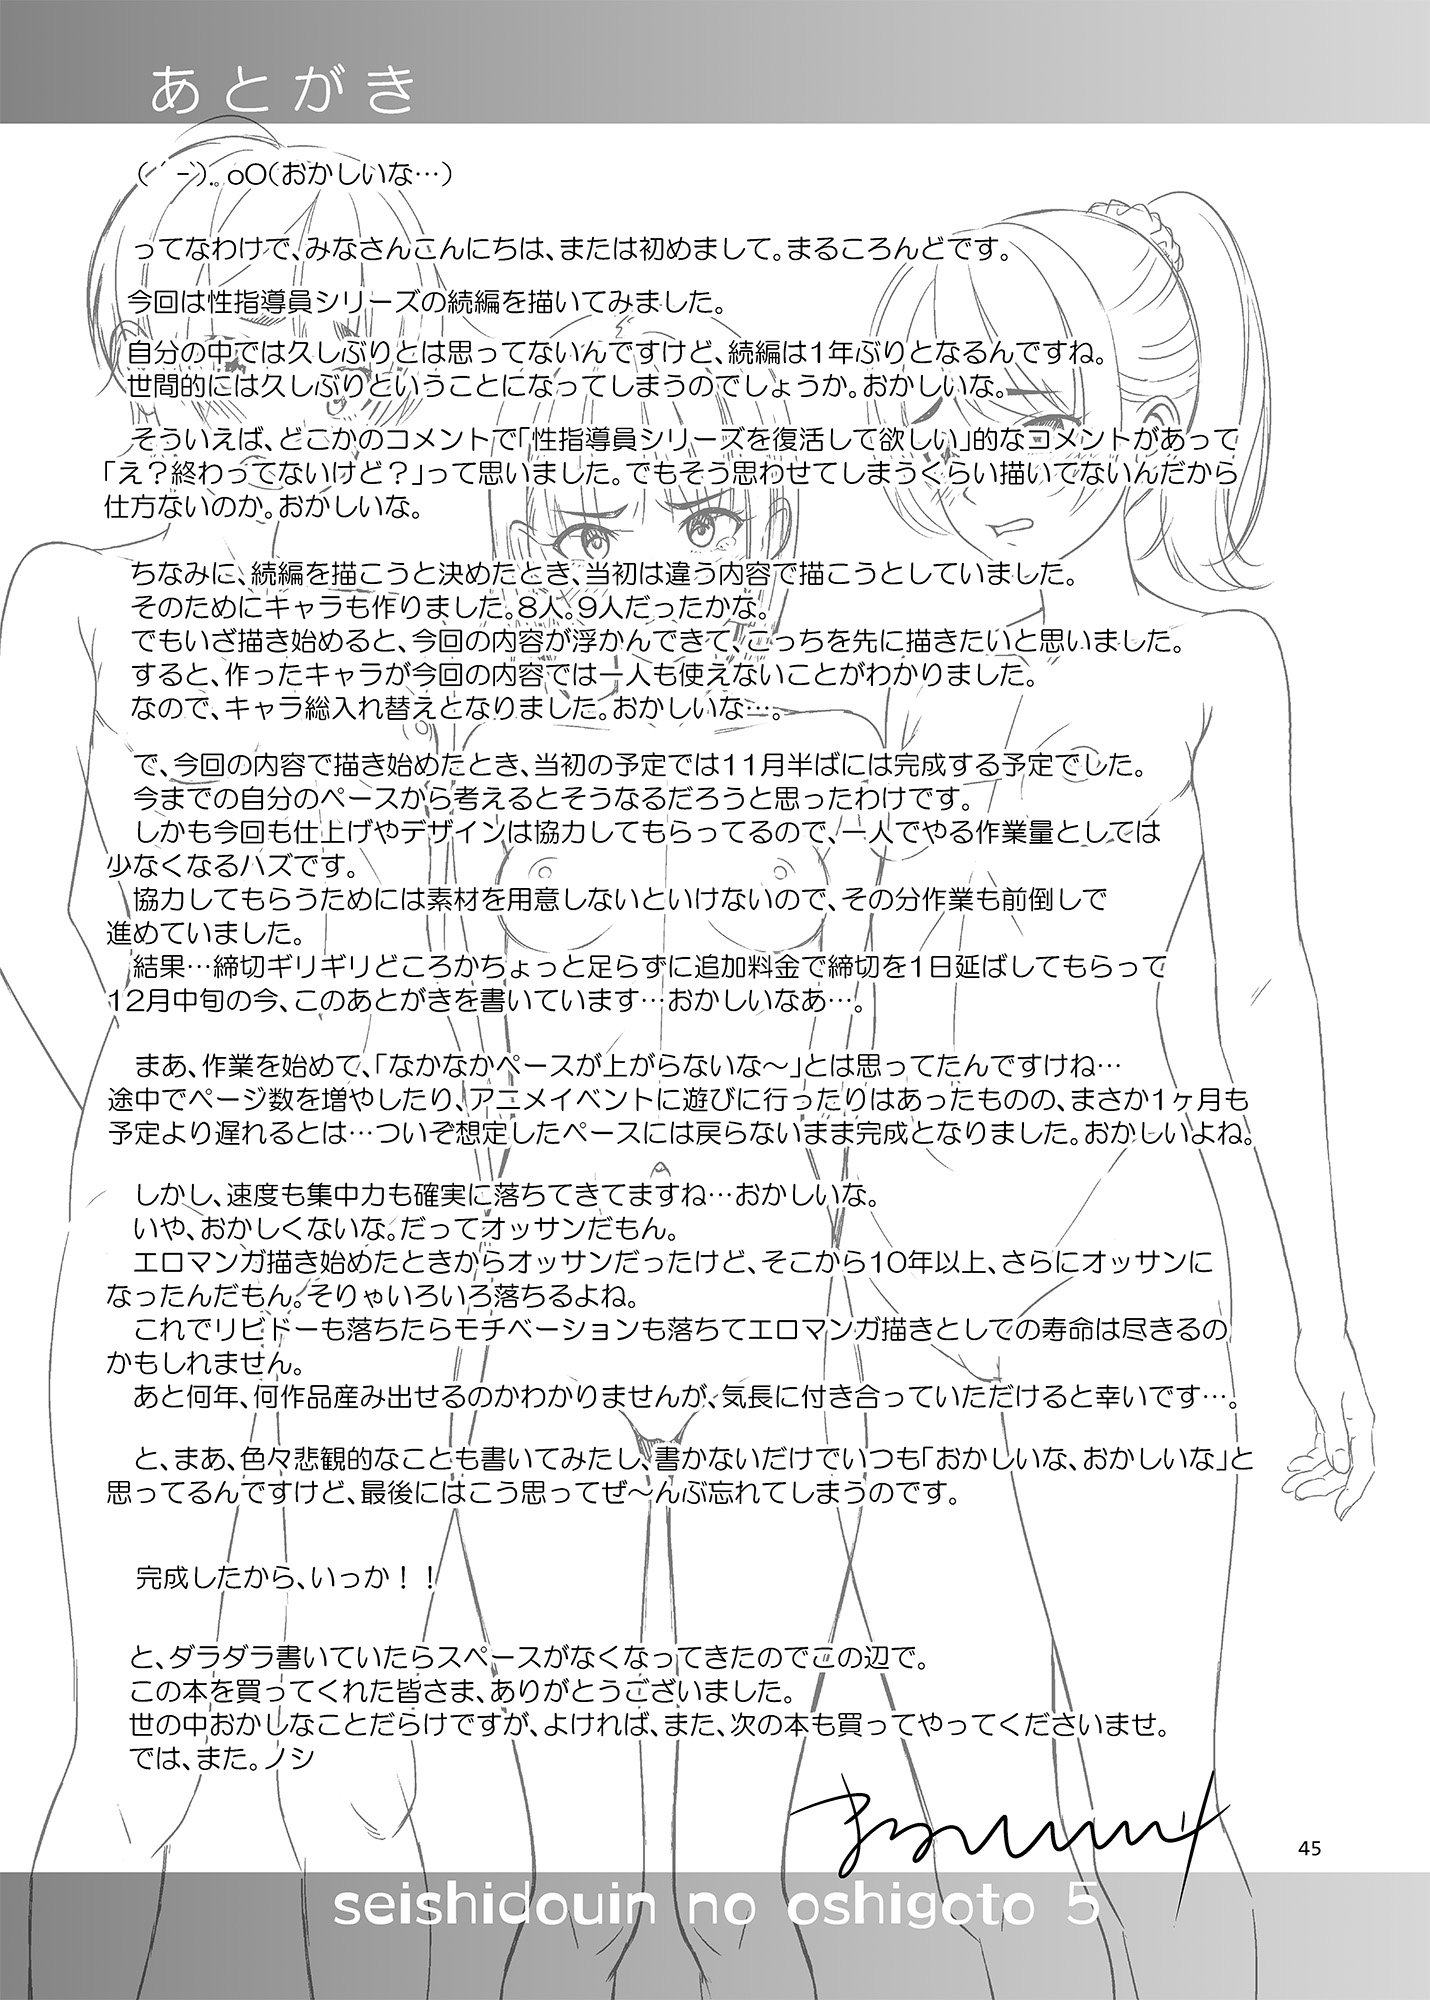 あとがき
(´-`).｡oO(おかしいな…)
ってなわけで、みなさんこんにちは、または初めまして。まるころんどです。
今回は性指導員シリーズの続編を描いてみました。
自分の中では久しぶりとは思ってないんですけど、続編は1年ぶりとなるんですね。
世間的には久しぶりということになってしまうのでしょうか。おかしいな。
そういえば、どこかのコメントで「性指導員シリーズを復活して欲しい」的なコメントがあって
「え？終わってないけど？」って思いました。でもそう思わせてしまうくらい描いてないんだから
仕方ないのか。おかしいな。
ちなみに、続編を描こうと決めたとき、当初は違う内容で描こうとしていました。
そのためにキャラも作りました。8人、9人だったかな。
でもいざ描き始めると、今回の内容が浮かんできて、こっちを先に描きたいと思いました。
すると、作ったキャラが今回の内容では一人も使えないことがわかりました。
なので、キャラ総入れ替えとなりました。おかしいな…。
で、今回の内容で描き始めたとき、当初の予定では11月半ばには完成する予定でした。
今までの自分のペースから考えるとそうなるだろうと思ったわけです。
しかも今回も仕上げやデザインは協力してもらってるので、一人でやる作業量としては
少なくなるハズです。
協力してもらうためには素材を用意しないといけないので、その分作業も前倒しで
進めていました。
結果…締切ギリギリどころかちょっと足らずに追加料金で締切を1日延ばしてもらって
12月中旬の今、このあとがきを書いています…おかしいなあ…。
まあ、作業を始めて、「なかなかペースが上がらないな～」とは思ってたんですけどね…
途中でページ数を増やしたり、アニメイベントに遊びに行ったりはあったものの、まさか1ヶ月も
予定より遅れるとは…ついぞ想定したペースには戻らないまま完成となりました。おかしいよね。
しかし、速度も集中力も確実に落ちてきてますね…おかしいな。
いや、おかしくないな。だってオッサンだもん。
エロマンガ描き始めたときからオッサンだったけど、そこから10年以上、さらにオッサンに
なったんだもん。そりゃいろいろ落ちるよね。
これでリビドーも落ちたらモチベーションも落ちてエロマンガ描きとしての寿命は尽きるの
かもしれません。
あと何年、何作品産み出せるのかわかりませんが、気長に付き合っていただけると幸いです…。
と、まあ、色々悲観的なことも書いてみたし、書かないだけでいつも「おかしいな、おかしいな」と
思ってるんですけど、最後にはこう思ってぜ～んぶ忘れてしまうのです。
完成したから、いっか！！
と、ダラダラ書いていたらスペースがなくなってきたのでこの辺で。
この本を買ってくれた皆さま、ありがとうございました。
世の中おかしなことだらけですが、よければ、また、次の本も買ってやってくださいませ。
では、また。ノシ
45
seishidouin no oshigoto 5